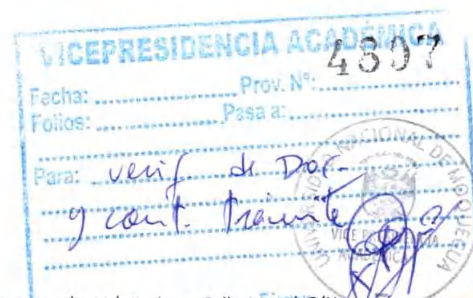 VICEPRESIDENCIA ACADÉMICA
Fecha: Prov. Nº: 4897
Folios: Pasa a:
Para: verif de Doc.
y cont. trámite
UNIVERSIDAD NACIONAL DE MOQUEGUA
ACADÉMICA